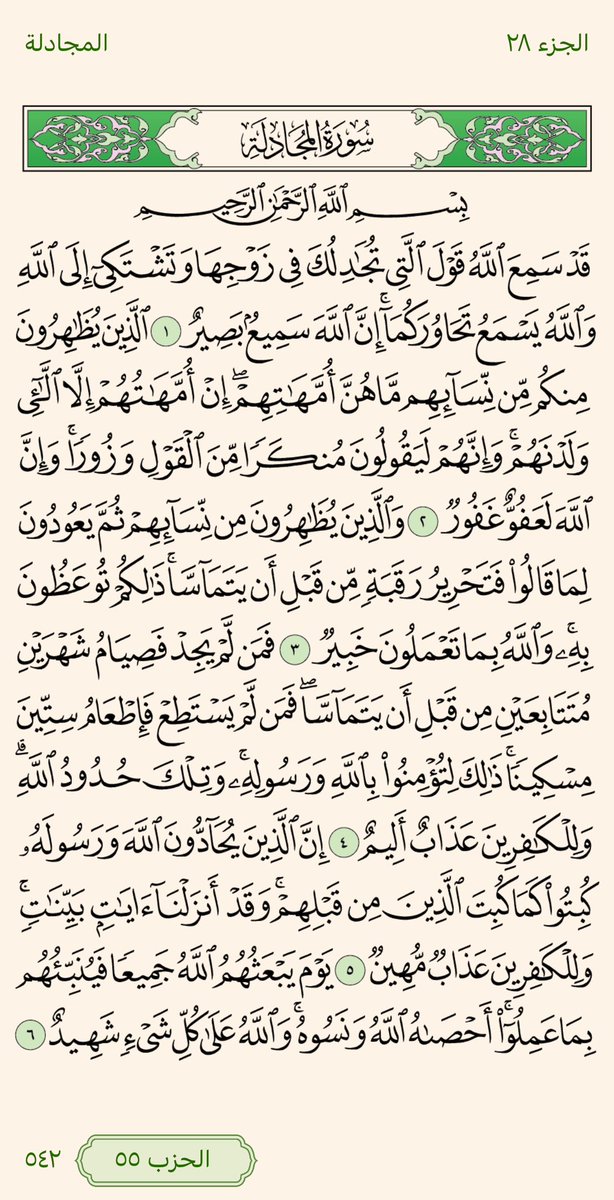 الجزء ٢٨
المجادلة
سُورَةُ المُجَادلَةِ
بِسۡمِ ٱللَّهِ ٱلرَّحۡمَٰنِ ٱلرَّحِيمِ
قَدۡ سَمِعَ ٱللَّهُ قَوۡلَ ٱلَّتِي تُجَٰدِلُكَ فِي زَوۡجِهَا وَتَشۡتَكِيٓ إِلَى ٱللَّهِ
وَٱللَّهُ يَسۡمَعُ تَحَاوُرَكُمَآۚ إِنَّ ٱللَّهَ سَمِيعُۢ بَصِيرٌ ١ ٱلَّذِينَ يُظَٰهِرُونَ
مِنكُم مِّن نِّسَآئِهِم مَّا هُنَّ أُمَّهَٰتِهِمۡۖ إِنۡ أُمَّهَٰتُهُمۡ إِلَّا ٱلَّٰٓـِٔي
وَلَدۡنَهُمۡۚ وَإِنَّهُمۡ لَيَقُولُونَ مُنكَرٗا مِّنَ ٱلۡقَوۡلِ وَزُورٗاۚ وَإِنَّ
ٱللَّهَ لَعَفُوٌّ غَفُورٞ ٢ وَٱلَّذِينَ يُظَٰهِرُونَ مِن نِّسَآئِهِمۡ ثُمَّ يَعُودُونَ
لِمَا قَالُواْ فَتَحۡرِيرُ رَقَبَةٖ مِّن قَبۡلِ أَن يَتَمَآسَّاۚ ذَٰلِكُمۡ تُوعَظُونَ
بِهِۦۚ وَٱللَّهُ بِمَا تَعۡمَلُونَ خَبِيرٞ ٣ فَمَن لَّمۡ يَجِدۡ فَصِيَامُ شَهۡرَيۡنِ
مُتَتَابِعَيۡنِ مِن قَبۡلِ أَن يَتَمَآسَّاۖ فَمَن لَّمۡ يَسۡتَطِعۡ فَإِطۡعَامُ سِتِّينَ
مِسۡكِينٗاۚ ذَٰلِكَ لِتُؤۡمِنُواْ بِٱللَّهِ وَرَسُولِهِۦۚ وَتِلۡكَ حُدُودُ ٱللَّهِۗ
وَلِلۡكَٰفِرِينَ عَذَابٌ أَلِيمٌ ٤ إِنَّ ٱلَّذِينَ يُحَآدُّونَ ٱللَّهَ وَرَسُولَهُۥ
كُبِتُواْ كَمَا كُبِتَ ٱلَّذِينَ مِن قَبۡلِهِمۡۚ وَقَدۡ أَنزَلۡنَآ ءَايَٰتِۭ بَيِّنَٰتٖۚ
وَلِلۡكَٰفِرِينَ عَذَابٞ مُّهِينٞ ٥ يَوۡمَ يَبۡعَثُهُمُ ٱللَّهُ جَمِيعٗا فَيُنَبِّئُهُم
بِمَا عَمِلُوٓاْۚ أَحۡصَىٰهُ ٱللَّهُ وَنَسُوهُۚ وَٱللَّهُ عَلَىٰ كُلِّ شَيۡءٖ شَهِيدٌ ٦
الحزب ٥٥
٥٤٢